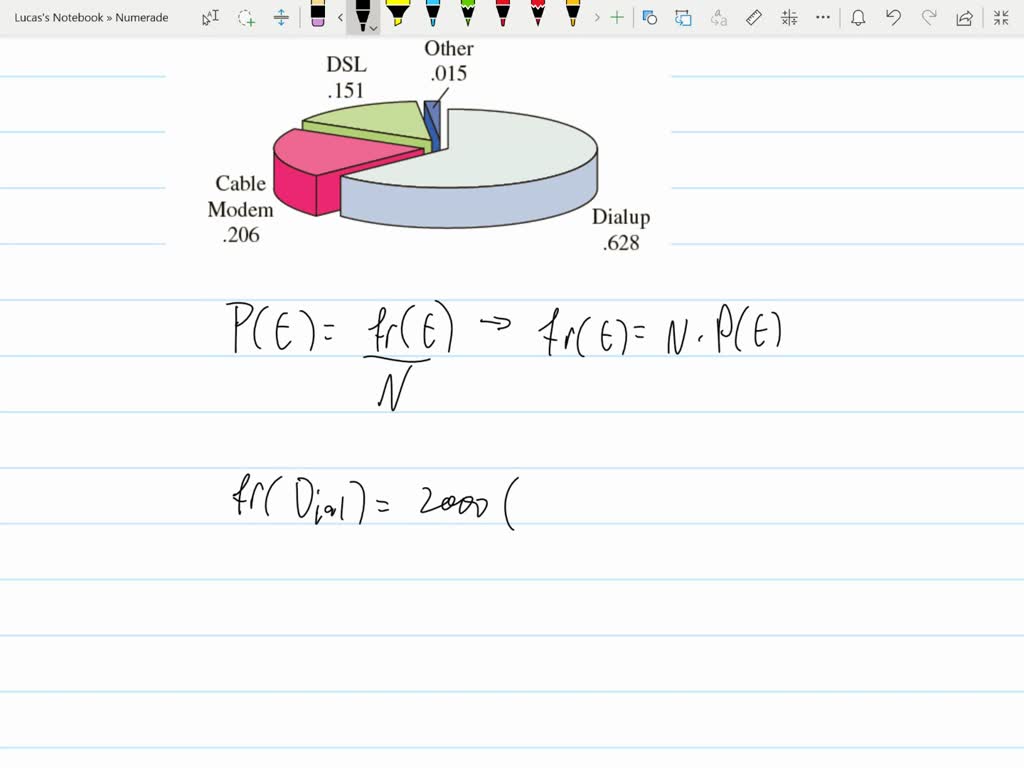 Lucas's Notebook » Numerade
Other
.015
DSL
.151
Cable
Modem
.206
Dialup
.628
P(E) = fr(E) → fr(E) = N · P(E)
N
fr(Dial) = 2000 (